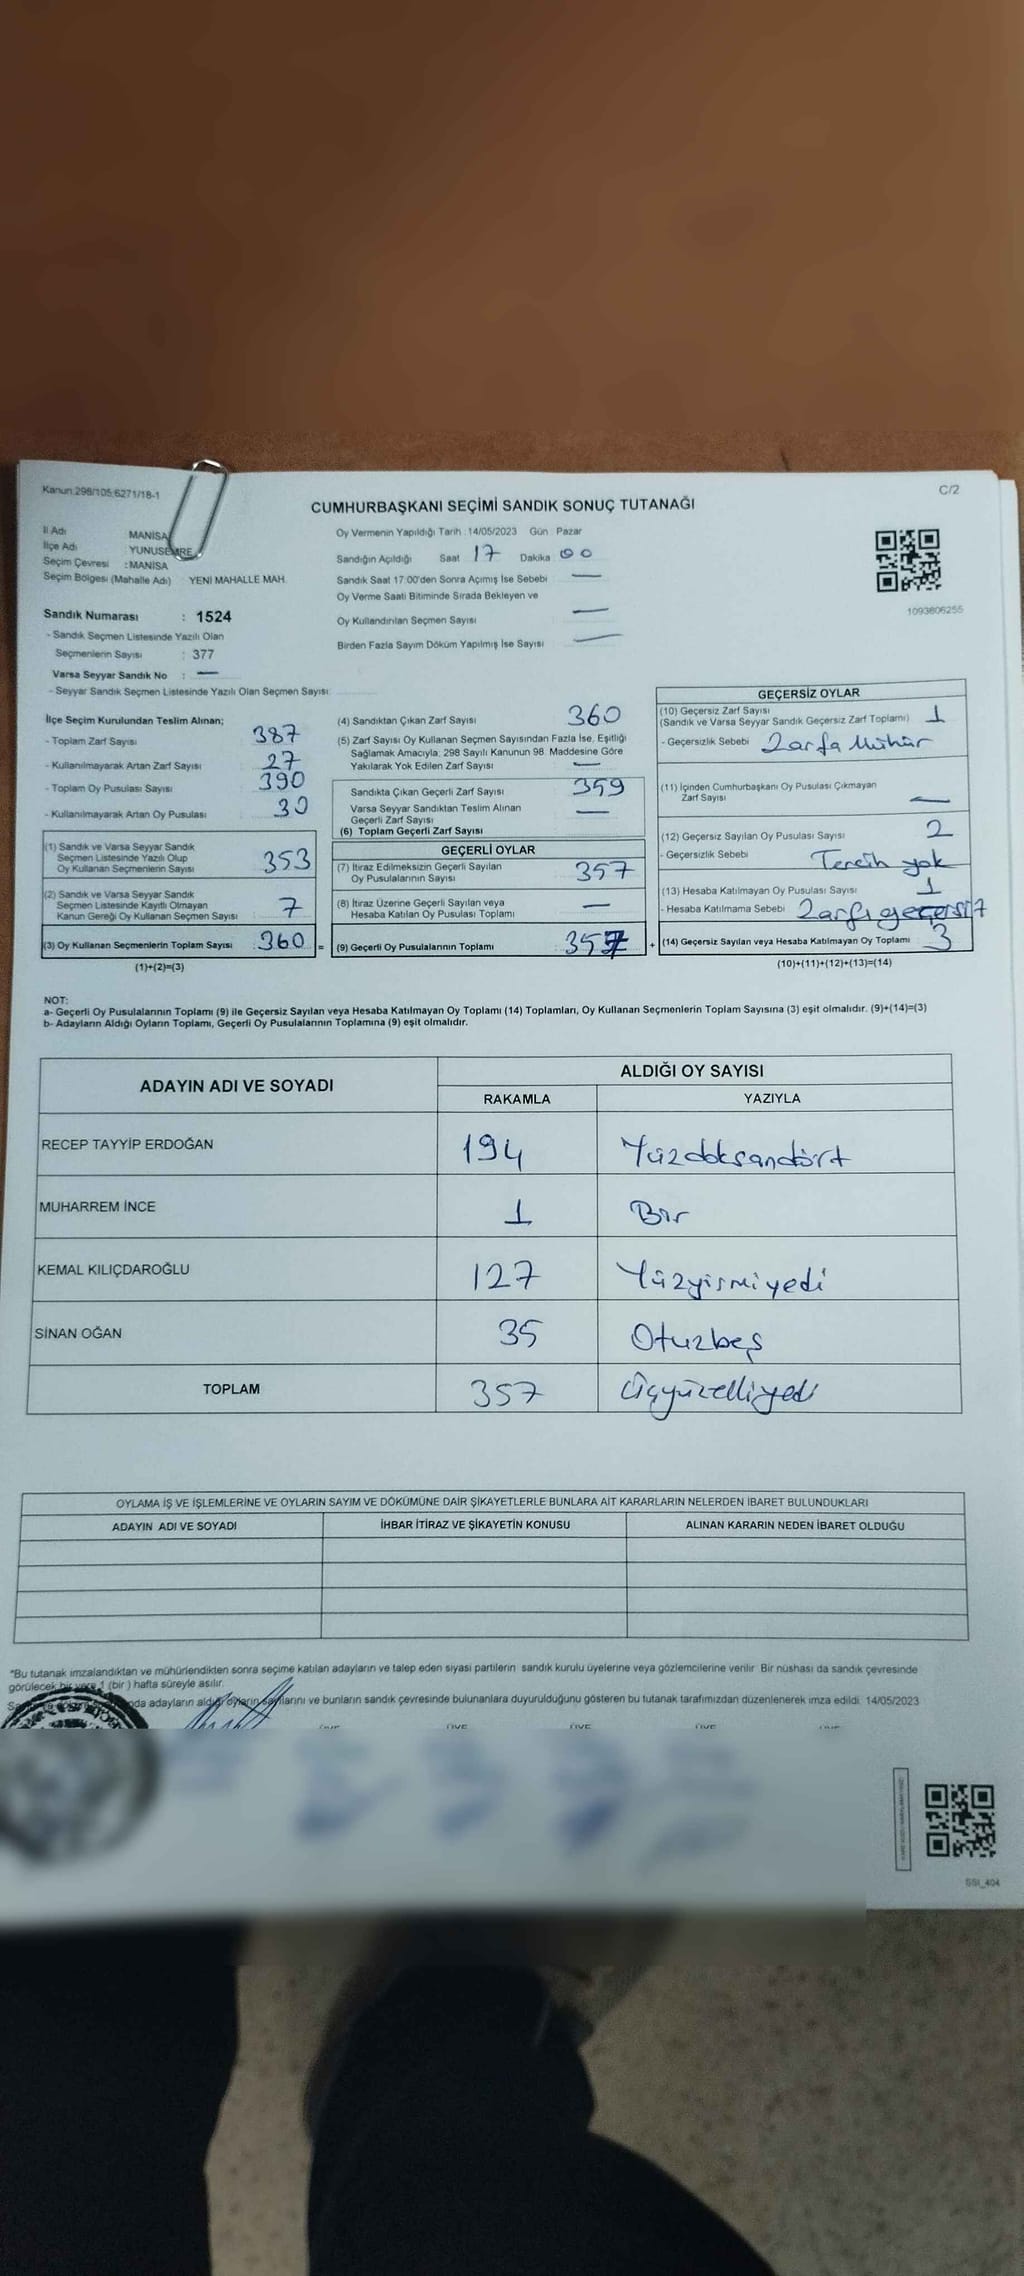 Kanun.298/105,6271/18-1
C/2
CUMHURBAŞKANI SEÇİMİ SANDIK SONUÇ TUTANAĞI
İl Adı MANİSA
İlçe Adı YUNUSEMRE
Seçim Çevresi : MANİSA
Seçim Bölgesi (Mahalle Adı) YENİ MAHALLE MAH.
Sandık Numarası : 1524
- Sandık Seçmen Listesinde Yazılı Olan
Seçmenlerin Sayısı : 377
Varsa Seyyar Sandık No : —
- Seyyar Sandık Seçmen Listesinde Yazılı Olan Seçmen Sayısı:
Oy Vermenin Yapıldığı Tarih :14/05/2023 Gün Pazar
Sandığın Açıldığı Saat 17 Dakika 00
Sandık Saat 17:00'den Sonra Açımış İse Sebebi —
Oy Verme Saati Bitiminde Sırada Bekleyen ve
Oy Kullandırılan Seçmen Sayısı —
Birden Fazla Sayım Döküm Yapılmış İse Sayısı —
1093806255
İlçe Seçim Kurulundan Teslim Alınan;
- Toplam Zarf Sayısı 387
- Kullanılmayarak Artan Zarf Sayısı 27
- Toplam Oy Pusulası Sayısı 390
- Kullanılmayarak Artan Oy Pusulası 30
(1) Sandık ve Varsa Seyyar Sandık
Seçmen Listesinde Yazılı Olup
Oy Kullanan Seçmenlerin Sayısı 353
(2) Sandık ve Varsa Seyyar Sandık
Seçmen Listesinde Kayıtlı Olmayan
Kanun Gereği Oy Kullanan Seçmen Sayısı 7
(3) Oy Kullanan Seçmenlerin Toplam Sayısı 360 =
(1)+(2)=(3)
(4) Sandıktan Çıkan Zarf Sayısı 360
(5) Zarf Sayısı Oy Kullanan Seçmen Sayısından Fazla İse, Eşitliği
Sağlamak Amacıyla, 298 Sayılı Kanunun 98. Maddesine Göre
Yakılarak Yok Edilen Zarf Sayısı —
Sandıkta Çıkan Geçerli Zarf Sayısı 359
Varsa Seyyar Sandıktan Teslim Alınan
Geçerli Zarf Sayısı —
(6) Toplam Geçerli Zarf Sayısı
GEÇERLİ OYLAR
(7) İtiraz Edilmeksizin Geçerli Sayılan
Oy Pusulalarının Sayısı 357
(8) İtiraz Üzerine Geçerli Sayılan veya
Hesaba Katılan Oy Pusulası Toplamı —
(9) Geçerli Oy Pusulalarının Toplamı 357 +
GEÇERSİZ OYLAR
(10) Geçersiz Zarf Sayısı
(Sandık ve Varsa Seyyar Sandık Geçersiz Zarf Toplamı) 1
- Geçersizlik Sebebi Zarfa Mühür
(11) İçinden Cumhurbaşkanı Oy Pusulası Çıkmayan
Zarf Sayısı —
(12) Geçersiz Sayılan Oy Pusulası Sayısı 2
- Geçersizlik Sebebi Tercih yok
(13) Hesaba Katılmayan Oy Pusulası Sayısı 1
- Hesaba Katılmama Sebebi Zarfı geçersiz
(14) Geçersiz Sayılan veya Hesaba Katılmayan Oy Toplamı 3
(10)+(11)+(12)+(13)=(14)
NOT:
a- Geçerli Oy Pusulalarının Toplamı (9) ile Geçersiz Sayılan veya Hesaba Katılmayan Oy Toplamı (14) Toplamları, Oy Kullanan Seçmenlerin Toplam Sayısına (3) eşit olmalıdır. (9)+(14)=(3)
b- Adayların Aldığı Oyların Toplamı, Geçerli Oy Pusulalarının Toplamına (9) eşit olmalıdır.
ADAYIN ADI VE SOYADI ALDIĞI OY SAYISI
RAKAMLA YAZIYLA
RECEP TAYYİP ERDOĞAN 194 Yüzdoksandört
MUHARREM İNCE 1 Bir
KEMAL KILIÇDAROĞLU 127 Yüzyirmiyedi
SİNAN OĞAN 35 Otuzbeş
TOPLAM 357 Üçyüzelliyedi
OYLAMA İŞ VE İŞLEMLERİNE VE OYLARIN SAYIM VE DÖKÜMÜNE DAİR ŞİKAYETLERLE BUNLARA AİT KARARLARIN NELERDEN İBARET BULUNDUKLARI
ADAYIN ADI VE SOYADI İHBAR İTİRAZ VE ŞİKAYETİN KONUSU ALINAN KARARIN NEDEN İBARET OLDUĞU
"Bu tutanak imzalandıktan ve mühürlendikten sonra seçime katılan adayların ve talep eden siyasi partilerin sandık kurulu üyelerine veya gözlemcilerine verilir. Bir nüshası da sandık çevresinde
görülecek bir yere 1 (bir ) hafta süreyle asılır.
adayların aldığı oyların sayılarını ve bunların sandık çevresinde bulunanlara duyurulduğunu gösteren bu tutanak tarafımızdan düzenlenerek imza edildi. 14/05/2023
ÜYE ÜYE ÜYE ÜYE ÜYE
SSI_404